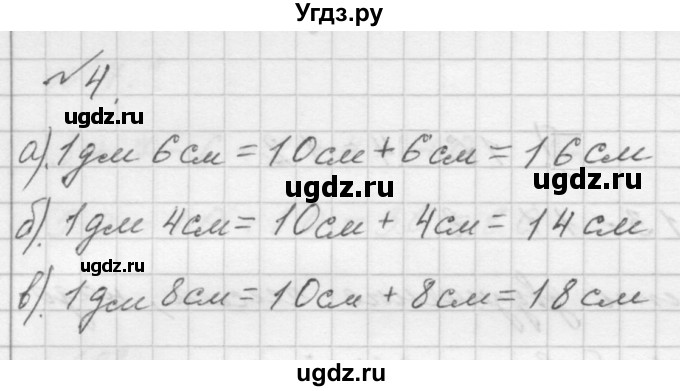 Угдз.ру
№4.
ugdz.ru
а). 1дм 6см = 10см + 6см = 16см
ugdz.ru
б). 1дм 4см = 10см + 4см = 14см
ugdz.ru
ugdz.ru
в). 1дм 8см = 10см + 8см = 18см
ugdz.ru
ugdz.ru